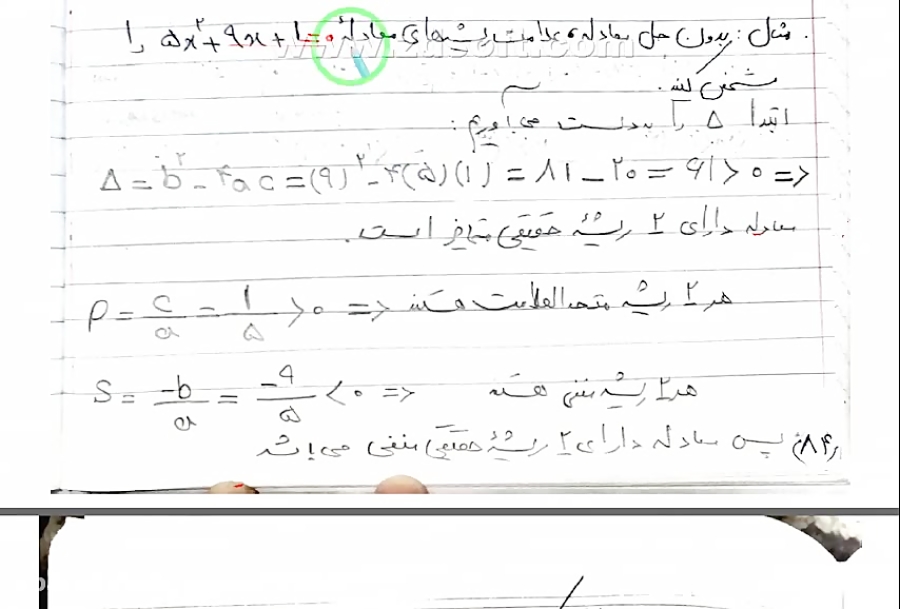 مثال: بدون حل معادله، علامت ریشه‌های معادلهٔ ۵x²+۹x+۱=۰ را
مشخص کنید.
ابتدا Δ را بدست می‌آوریم:
Δ = b² - ۴ac = (۹)² - ۴(۵)(۱) = ۸۱ - ۲۰ = ۶۱ > ۰ =>
معادله دارای ۲ ریشهٔ حقیقی متمایز است.
P = c/a = ۱/۵ > ۰ => هر ۲ ریشه متحدالعلامت هستند
S = -b/a = -۹/۵ < ۰ => هر ۲ ریشه منفی هستند
پس معادله دارای ۲ ریشهٔ حقیقی منفی می‌باشد